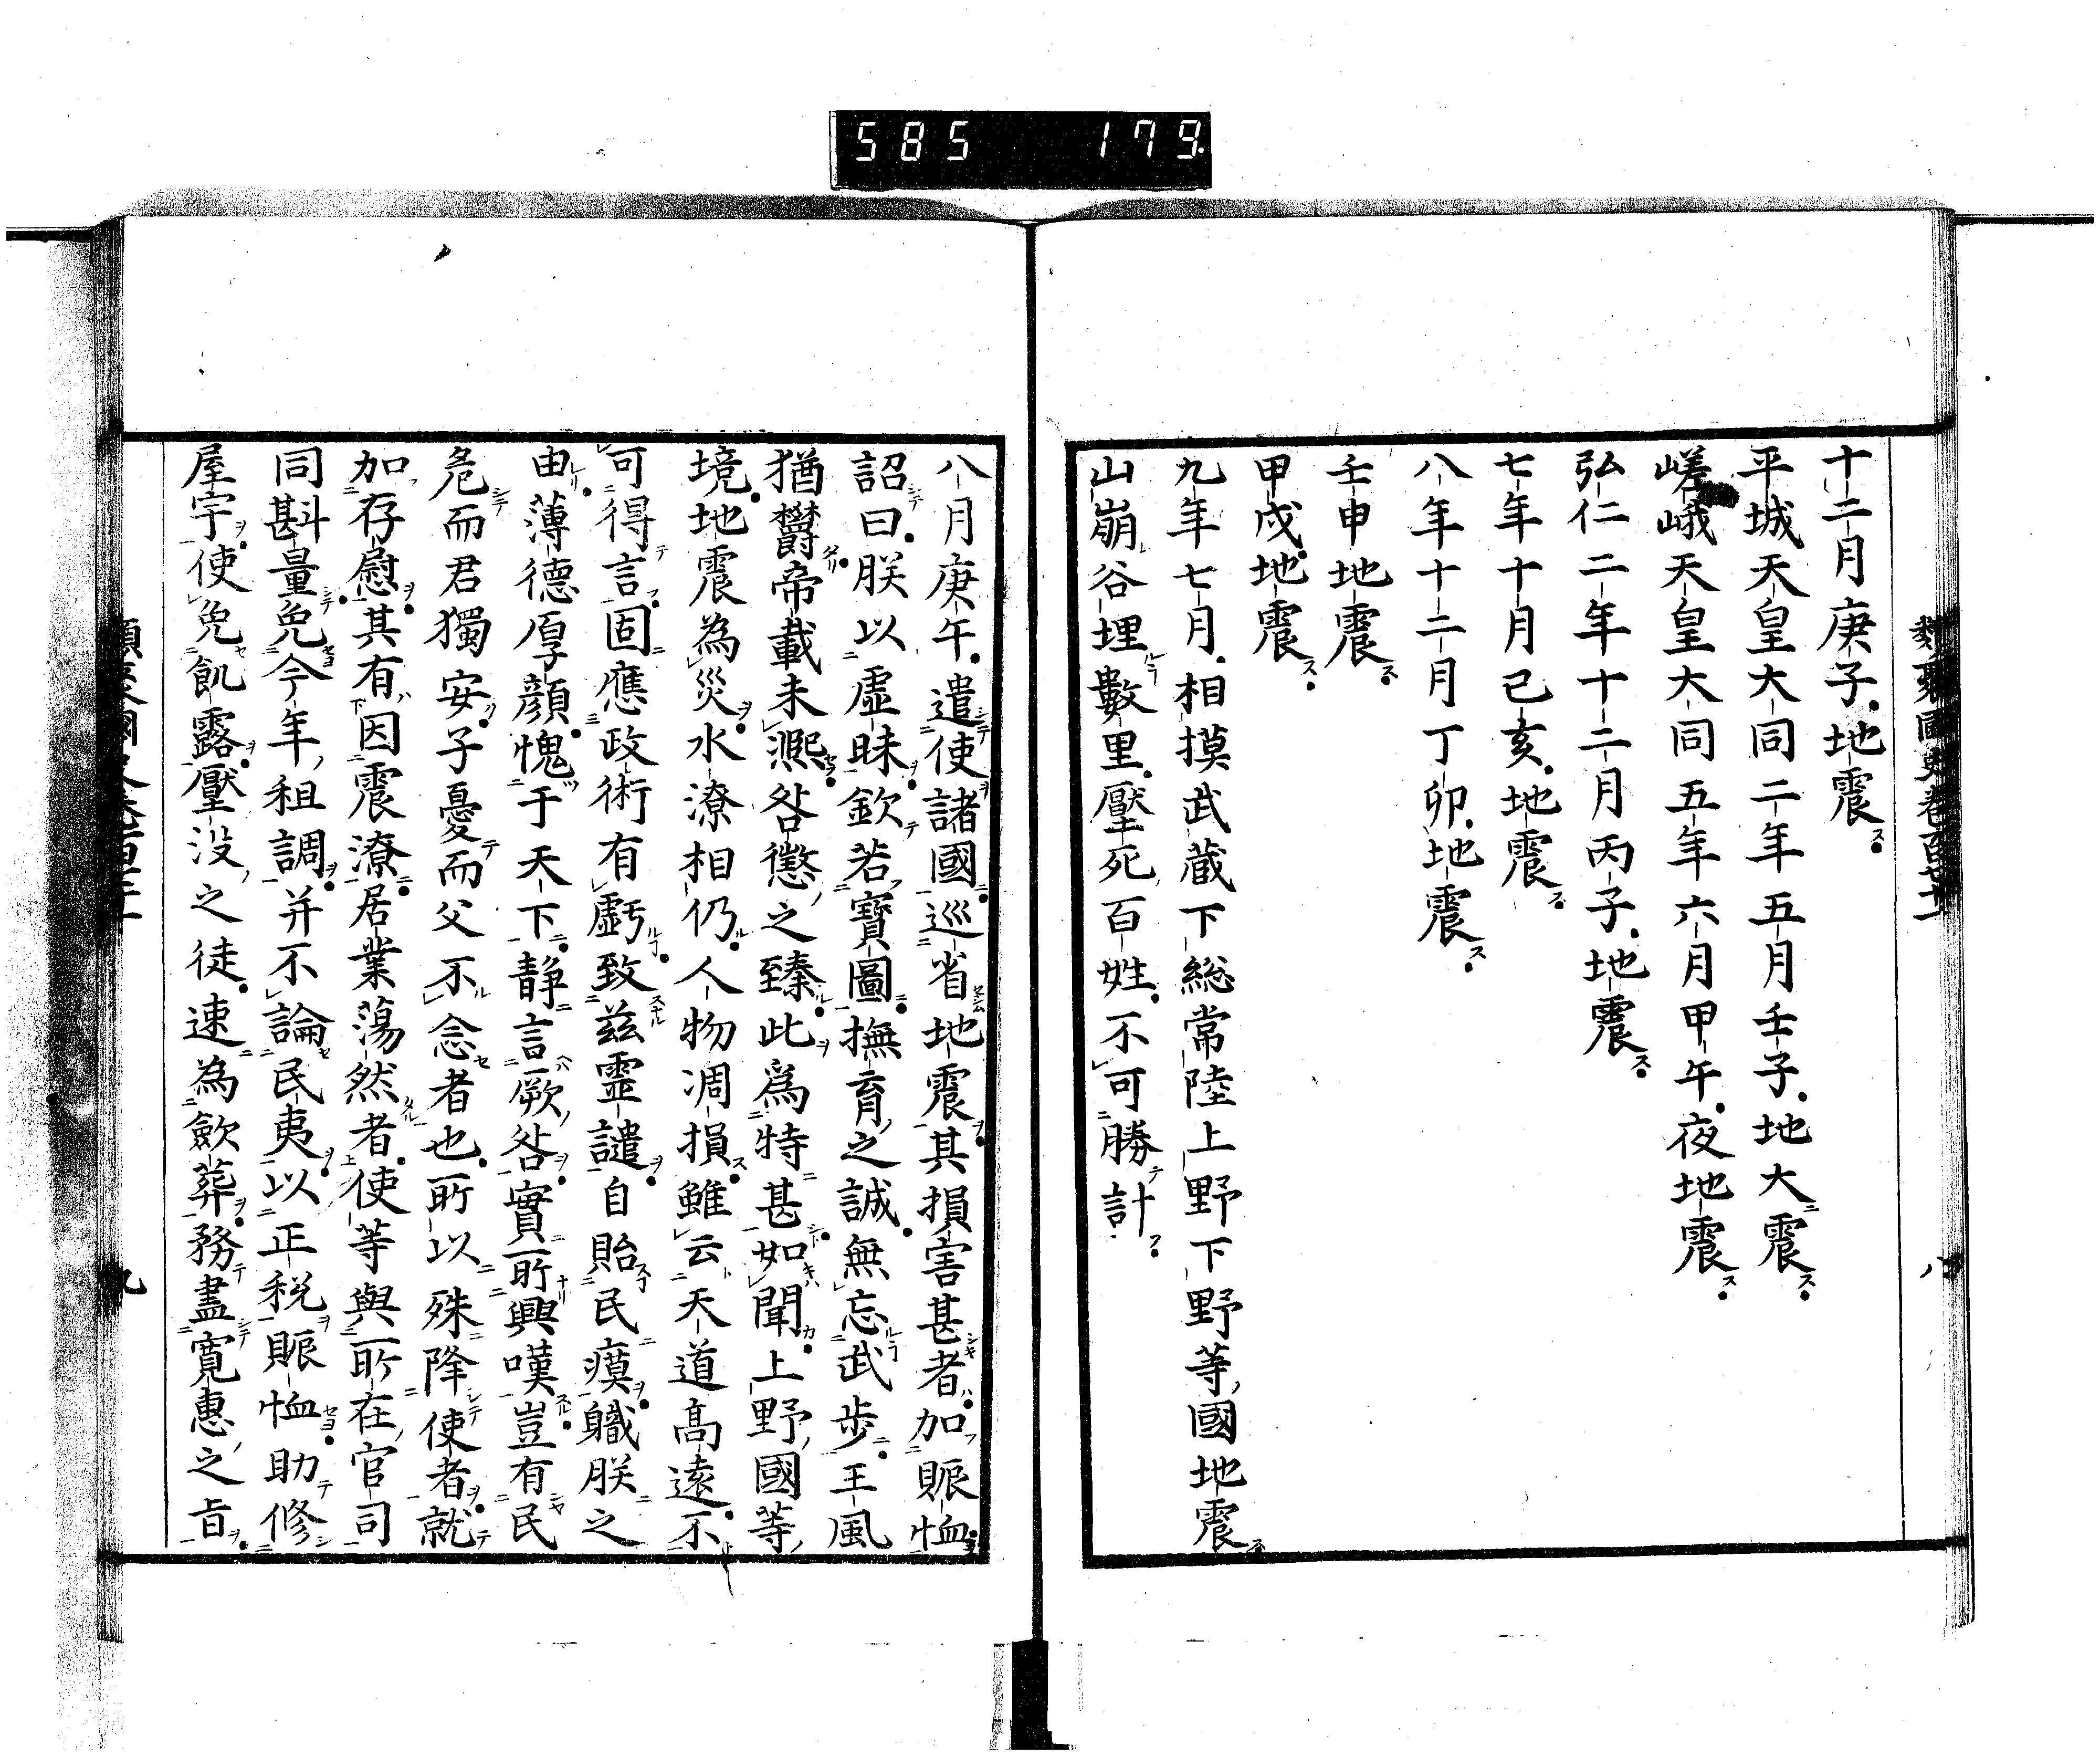 585 179
十二月庚子地震ス
平城天皇大同二年五月壬子地大ニ震ス
嵯峨天皇大同五年六月甲午夜地震ス
弘仁二年十二月丙子地震ス
七年十月己亥地震ス
八年十二月丁卯地震ス
壬申地震ス
甲戌地震ス
九年七月相摸武蔵下総常陸上野下野等國地震
山崩谷埋數里壓死百姓不可勝計
八
八月庚午遣使諸國巡省地震其損害甚者加賑恤
詔曰朕以虛昧欽若寶圖撫育之誠無忘武步王風
猶欝帝載未凞咎懲之臻此為特甚如聞上野國等
境地震為災水潦相仍人物凋損雖云天道高遠不
可得言固應政術有虧致茲靈譴自貽民瘼職朕之
由薄德厚顔愧于天下静言厥咎實所興嘆豈有民
危而君獨安子憂而父不念者也所以殊降使者就
加存慰其有因震潦居業蕩然者使等與所在官司
同斟量免今年租調并不論民夷以正税賑恤助修
屋宇使免飢露壓没之徒速為歛葬務盡寛惠之旨
九